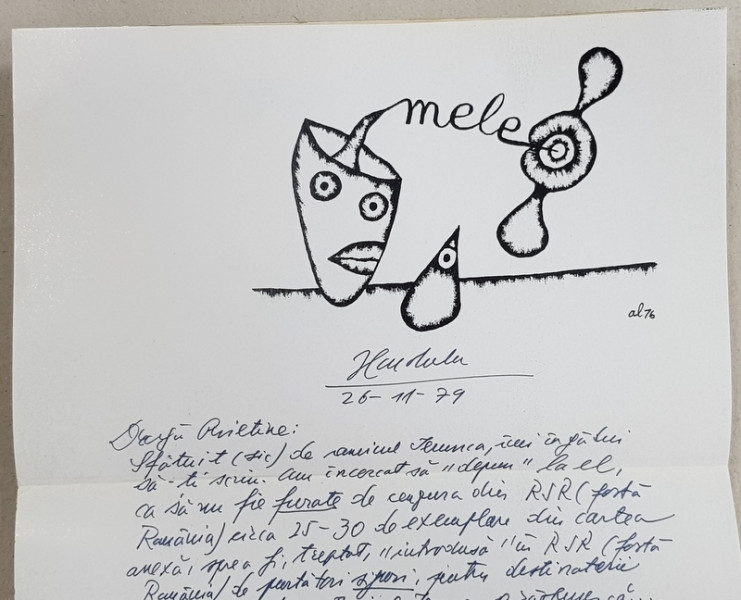 mele
al 76
Honolulu
26-11-79
Dragă Prietine:
Sfătuit (sic) de amicul Ierunca, îmi îngădui
să-ți scriu. Am încercat să "depun" la el,
ca să nu fie furate de cenzura din RSR (fostă
România) circa 25-30 de exemplare din cartea
anexă, spre a fi, treptat, "introdusă" în RSR (fostă
România) de purtători siguri, pentru destinatarii